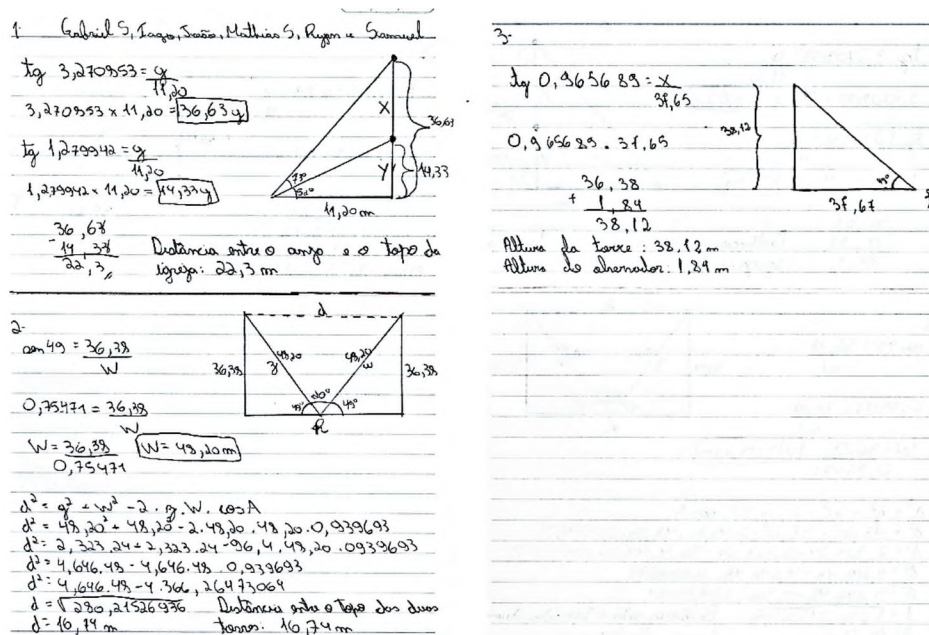 1. Gabriel S, Iago, João, Mathias S, Ryan e Samuel
tg 3,270853 = y
11,20
3,270853 x 11,20 = 36,63 y
tg 1,279942 = y
11,20
1,279942 x 11,20 = 14,33 y
36,67
- 14,37
22,3
Distância entre o anjo e o topo da
igreja: 22,3 m
X
Y
36,63
14,33
73°
52°
11,20 m
2-
sen 49 = 36,38
W
0,75471 = 36,38
W
W = 36,38
0,75471
W = 48,20 m
d
36,38
48,20
z
48,20
w
36,38
49°
20°
49°
R
d² = z² + w² - 2 . z . W . cos A
d² = 48,20² + 48,20² - 2 . 48,20 . 48,20 . 0,939693
d² = 2,323.24 + 2,323.24 - 96,4 . 48,20 . 0939693
d² = 4,646.48 - 4,646.48 . 0,939693
d² = 4,646.48 - 4.366,26473064
d = √280,21526936
d = 16,74 m
Distância entre o topo das duas
torres: 16,74 m
3-
tg 0,965689 = x
37,65
0,965689 . 37,65
36,38
+ 1,84
38,12
Altura da torre: 38,12 m
Altura do observador: 1,84 m
38,12
37,67